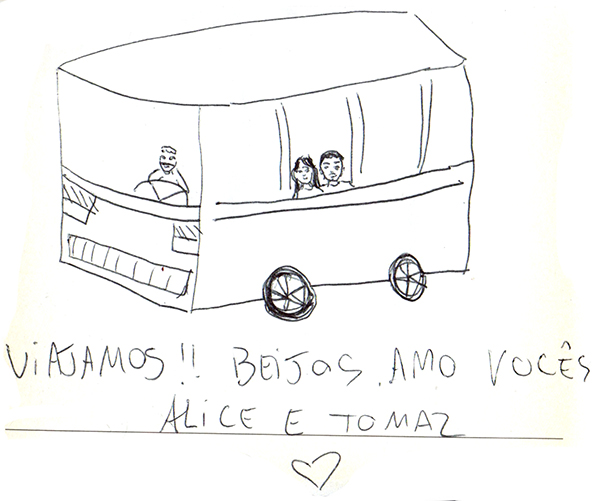 VIAJAMOS!! BEIJOS. AMO VOCÊS
ALICE E TOMAZ